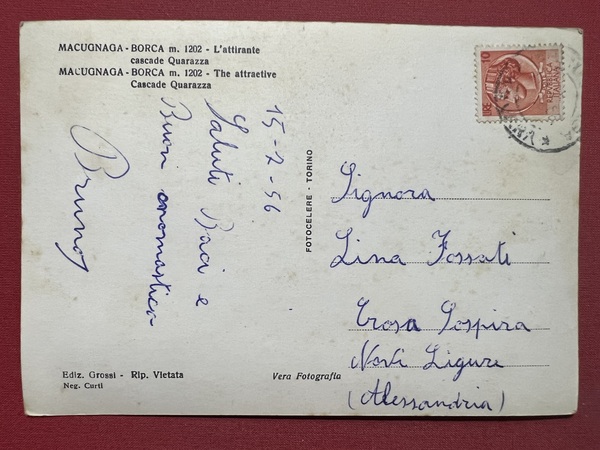 MACUGNAGA - BORCA m. 1202 - L'attirante
cascade Quarazza
MACUGNAGA - BORCA m. 1202 - The attractive
Cascade Quarazza
15-2-56
Saluti Baci e
Buon onomastico
Bruno
FOTOCELERE - TORINO
Signora
Lina Fossati
Crosa Sospira
Novi Ligure
(Alessandria)
Ediz. Grossi - Rip. Vietata
Neg. Curti
Vera Fotografia